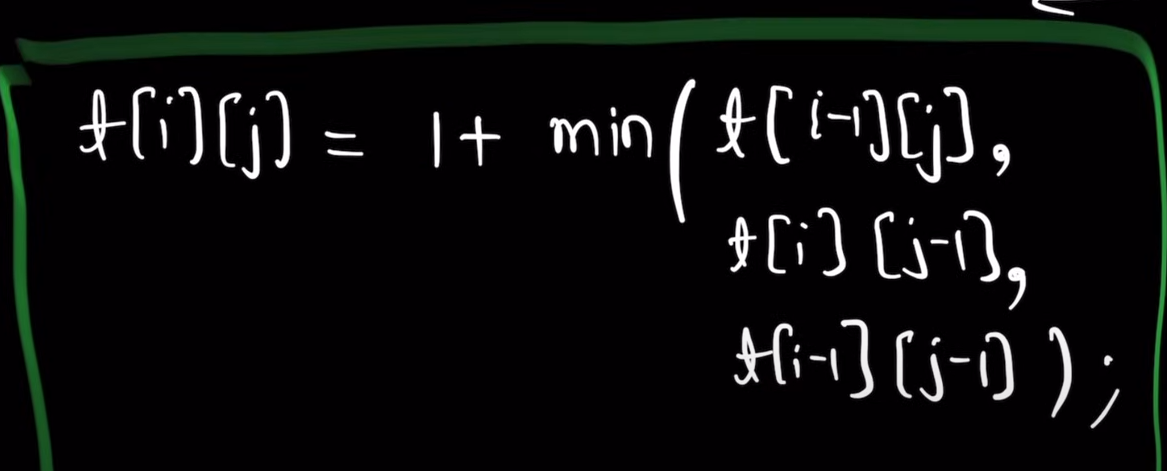 t[i][j] = 1 + min(t[i-1][j],
t[i][j-1],
t[i-1][j-1]);